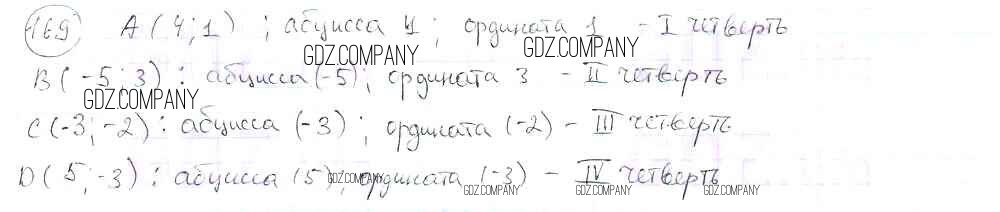 169 A (4;1) ; абсцисса 4 ; ордината 1 - I четверть
GDZ.COMPANY GDZ.COMPANY
B (-5;3) : абсцисса (-5); ордината 3 - II четверть
GDZ.COMPANY
C (-3;-2) : абсцисса (-3) ; ордината (-2) - III четверть
D (5;-3) : абсцисса (5); ордината (-3) - IV четверть
GDZ.COMPANY GDZ.COMPANY GDZ.COMPANY